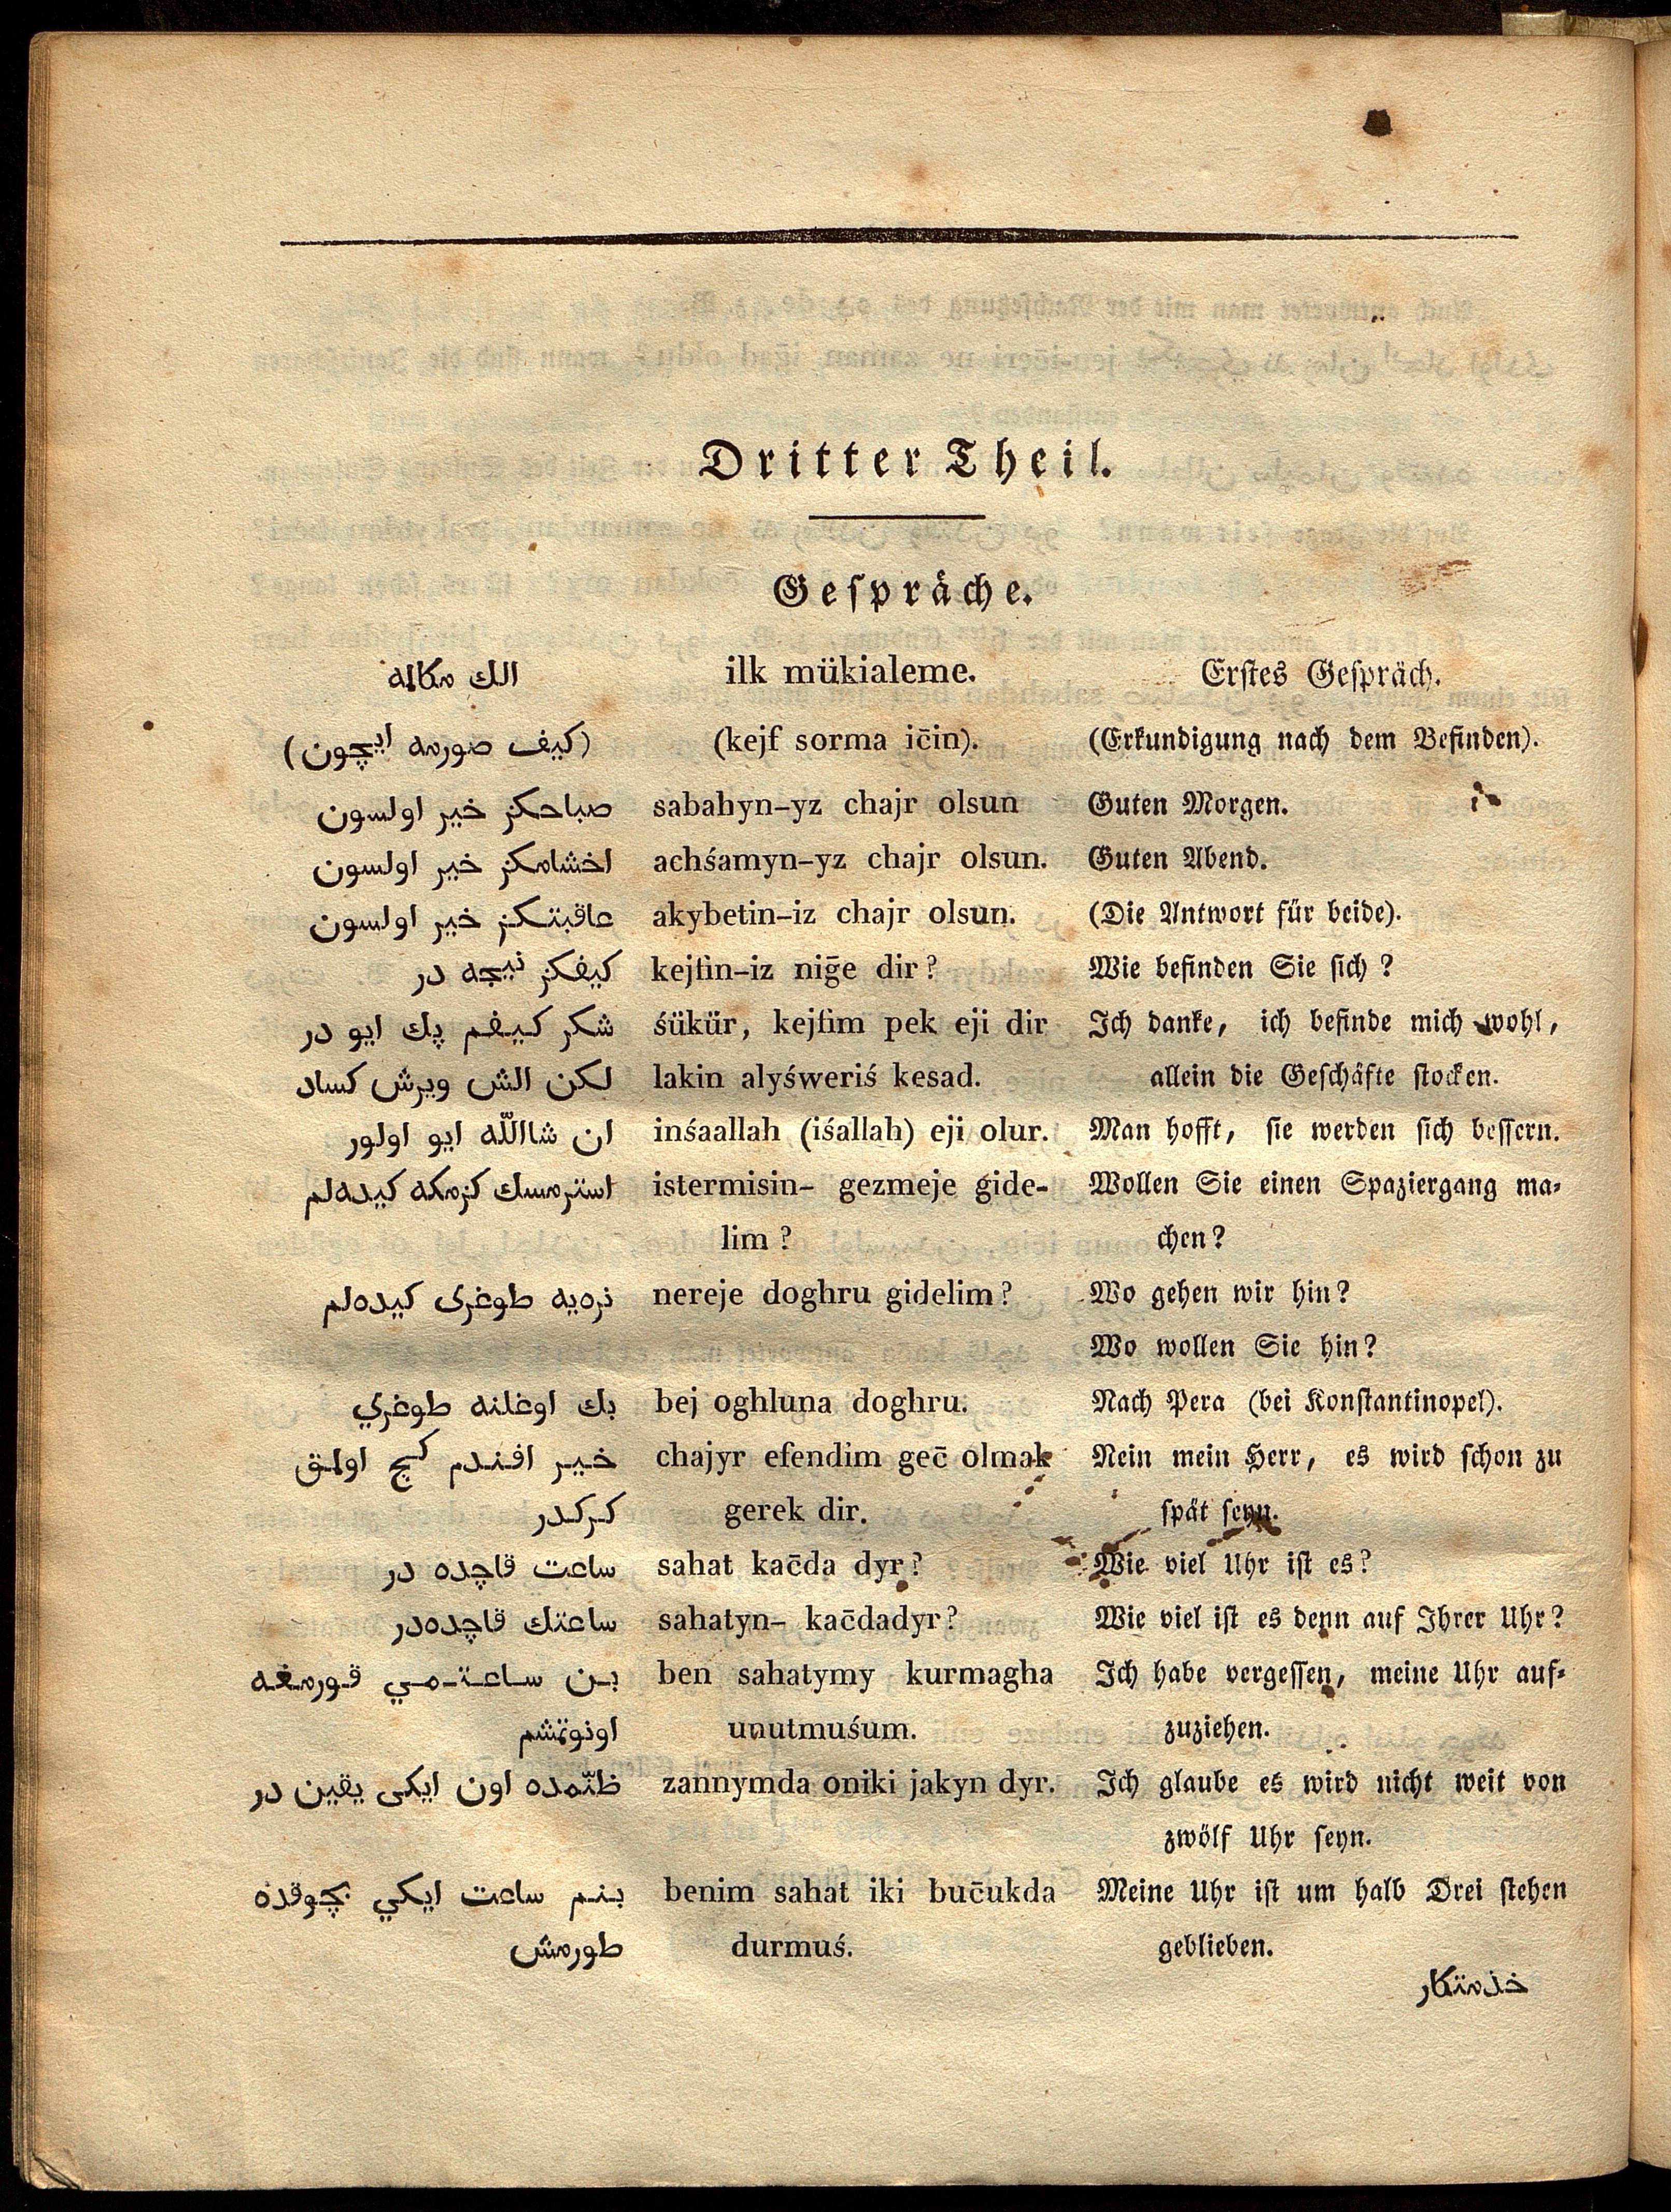 Dritter Theil.
Gespräche.
الك مكالمه ilk mükialeme. Erstes Gespräch.
(كيف صورمه ايچون) (kejf sorma ic̄in). (Erkundigung nach dem Befinden).
صباحكز خير اولسون sabahyn-yz chajr olsun Guten Morgen.
اخشامكز خير اولسون achśamyn-yz chajr olsun. Guten Abend.
عاقبتكز خير اولسون akybetin-iz chajr olsun. (Die Antwort für beide).
كيفكز نيجه در kejfin-iz niḡe dir? Wie befinden Sie sich?
شكر كيفم پك ايو در śükür, kejfim pek eji dir Ich danke, ich befinde mich wohl,
لكن الش ويرش كساد lakin alyśweriś kesad. allein die Geschäfte stocken.
ان شاالله ايو اولور inśaallah (iśallah) eji olur. Man hofft, sie werden sich bessern.
استرمسك كزمكه كيده‌لم istermisin- gezmeje gide- Wollen Sie einen Spaziergang ma-
lim? chen?
نره‌يه طوغرى كيده‌لم nereje doghru gidelim? Wo gehen wir hin?
Wo wollen Sie hin?
بك اوغلنه طوغري bej oghluna doghru. Nach Pera (bei Konstantinopel).
خير افندم كچ اولمق chajyr efendim gec̄ olmak Nein mein Herr, es wird schon zu
كركدر gerek dir. spät seyn.
ساعت قاچده در sahat kac̄da dyr? Wie viel Uhr ist es?
ساعتك قاچده‌در sahatyn- kac̄dadyr? Wie viel ist es denn auf Ihrer Uhr?
بن ساعتمي قورمغه ben sahatymy kurmagha Ich habe vergessen, meine Uhr auf-
اونوتمشم unutmuśum. zuziehen.
ظنّمده اون ايكى يقين در zannymda oniki jakyn dyr. Ich glaube es wird nicht weit von
zwölf Uhr seyn.
بنم ساعت ايكي بچوقده benim sahat iki buc̄ukda Meine Uhr ist um halb Drei stehen
طورمش durmuś. geblieben.
خذمتكار